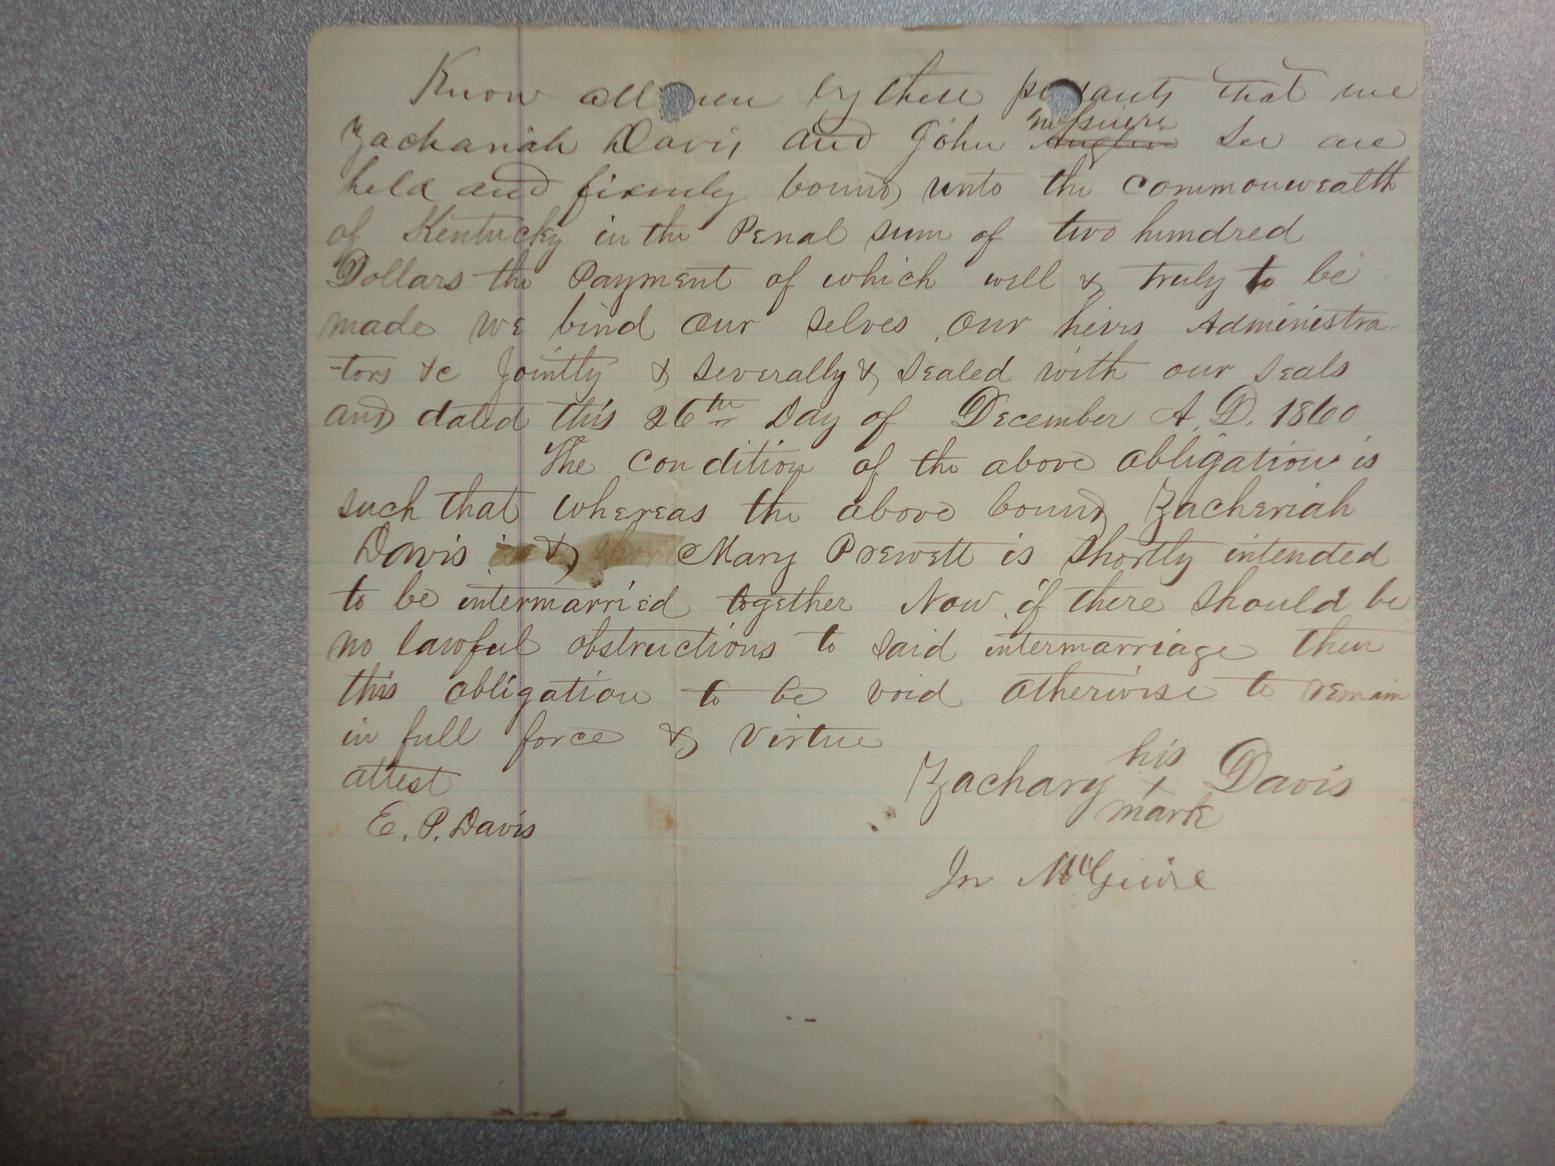 Know all men by these presants that we
Zachariah Davis and John McGuire Ser are
held and firmly bound unto the commonwealth
of Kentucky in the Penal sum of two hundred
Dollars the Payment of which well & truly to be
made we bind our selves our heirs Administra-
tors &c Jointly & severally & sealed with our seals
and dated this 26th Day of December A.D. 1860
The condition of the above obligation is
such that whereas the above bound Zacheriah
Davis & Mary Prewett is shortly intended
to be intermarried together Now if there should be
no lawful obstructions to said intermarriage then
this obligation to be void otherwise to remain
in full force & virtue
attest
E. P. Davis
Zachary his x mark Davis
Jn McGuire